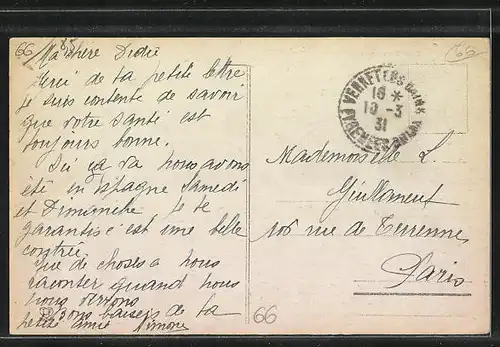 66
Ma chère Didie
Merci de ta petite lettre
je suis contente de savoir
que votre santé est
toujours bonne.
Ici ça va nous avons
été en Espagne Samedi
et Dimanche je te
garantis c'est une belle
contrée.
Que de choses a nous
raconter quand nous
nous verrons
Bons baisers de ta
petite amie Simone
VERNET LES BAINS
16 *
10 - 3
31
PYRENEES
66
Mademoiselle L.
Guillaneuf
106 rue de Turenne
Paris
66